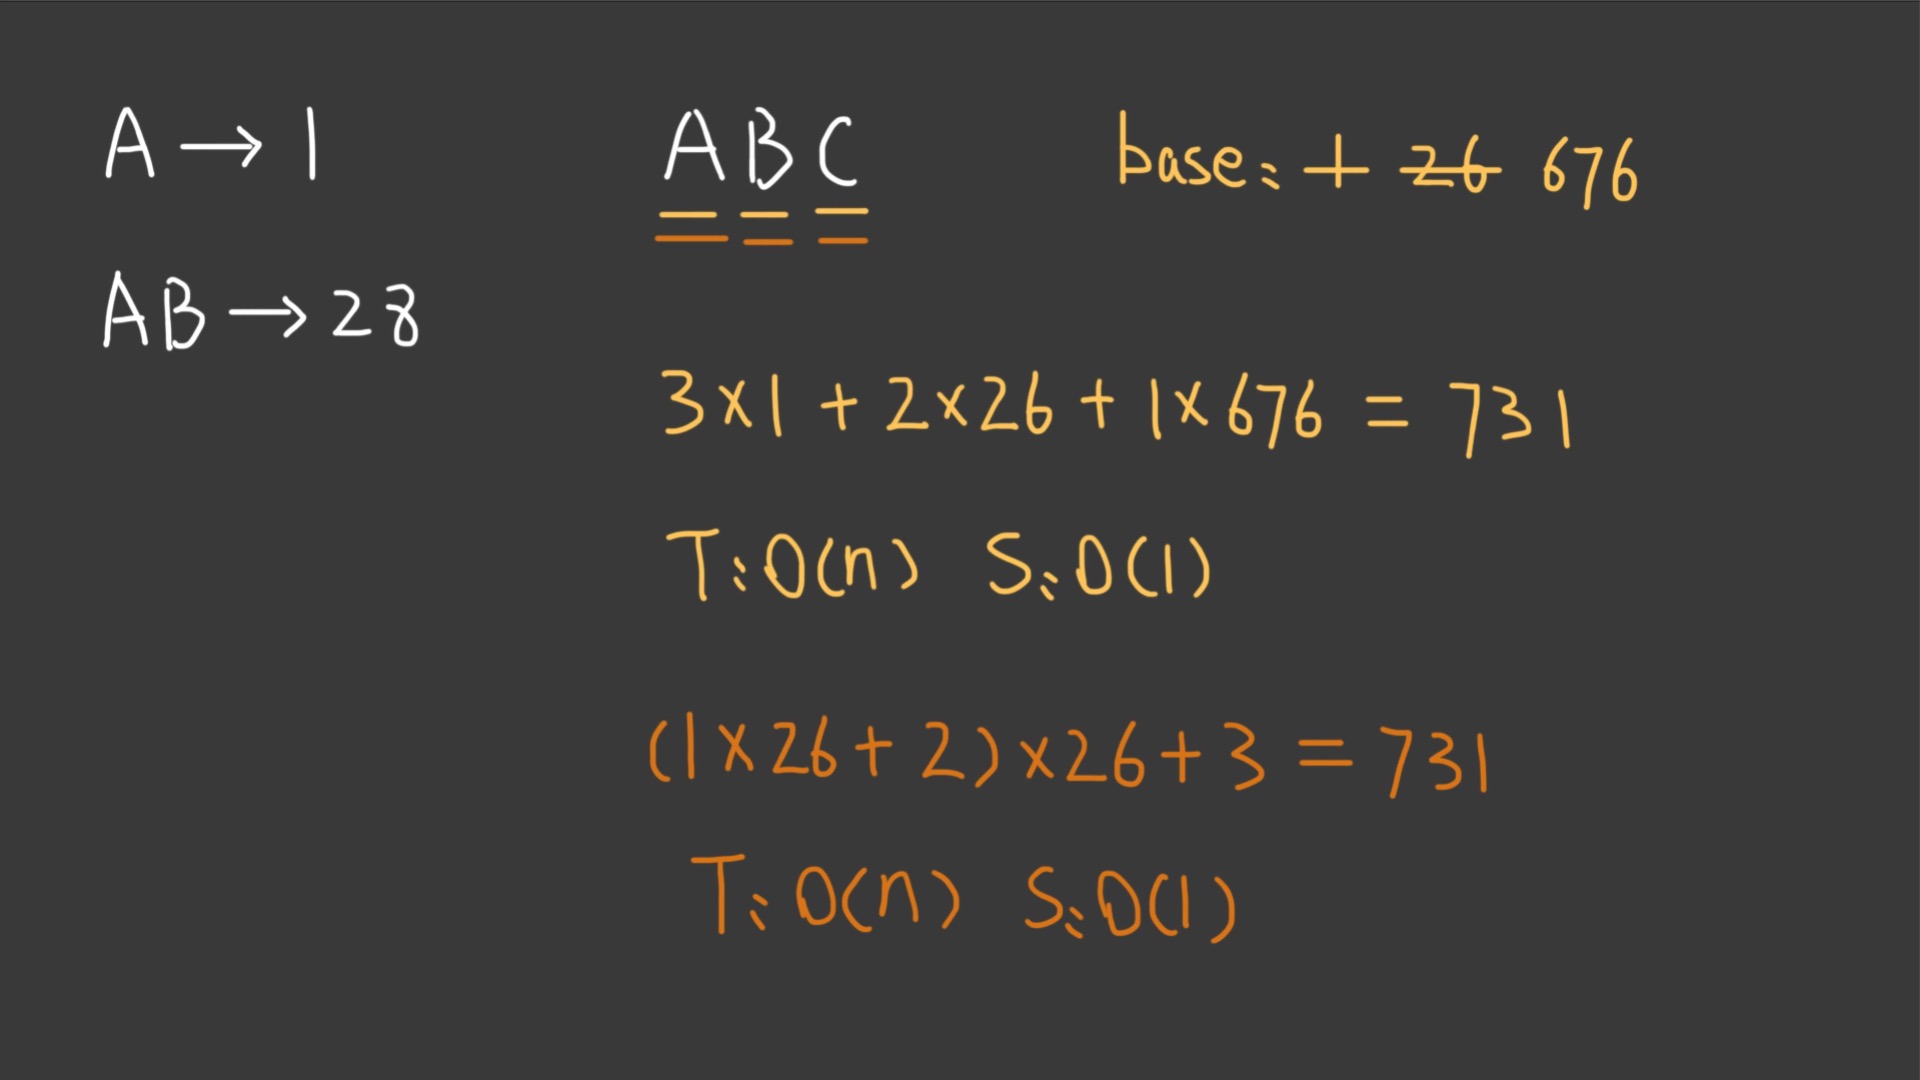 A → 1
AB → 28
ABC
base: 1 26 676
3×1 + 2×26 + 1×676 = 731
T: O(n) S: O(1)
(1×26+2)×26+3=731
T: O(n) S: O(1)